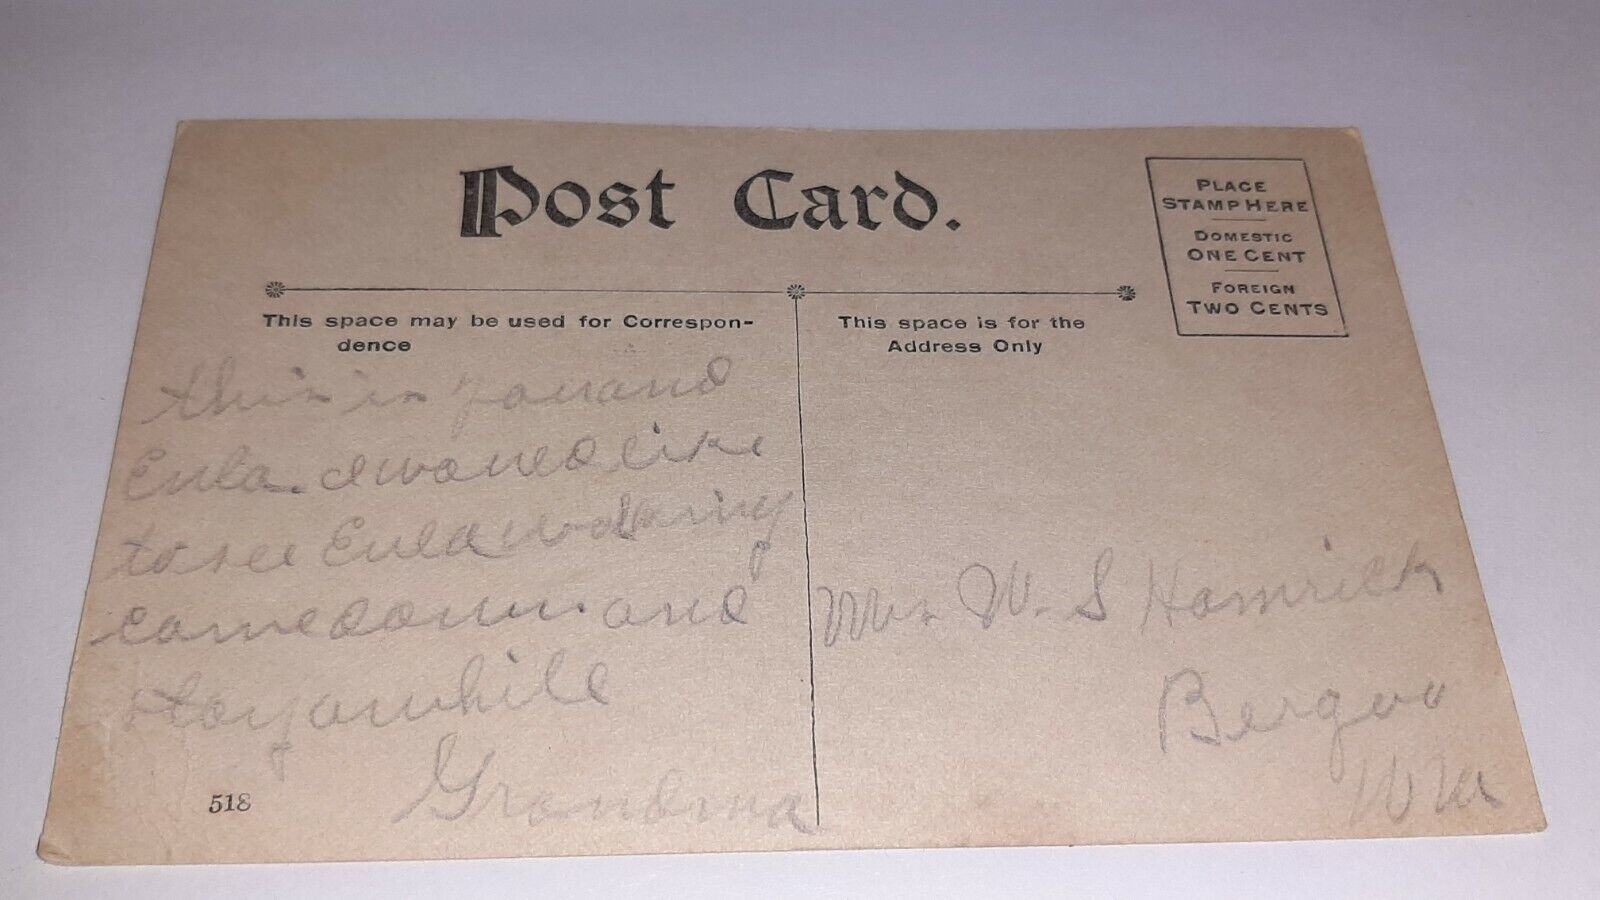 Post Card.
PLACE
STAMP HERE
DOMESTIC
ONE CENT
FOREIGN
TWO CENTS
This space may be used for Correspon-
dence
This space is for the
Address Only
this is for you and
Eula. I would like
to see Eula walking
come down and
stay awhile
Grandma
Mrs W. S Hamrick
Bergoo
W Va
518